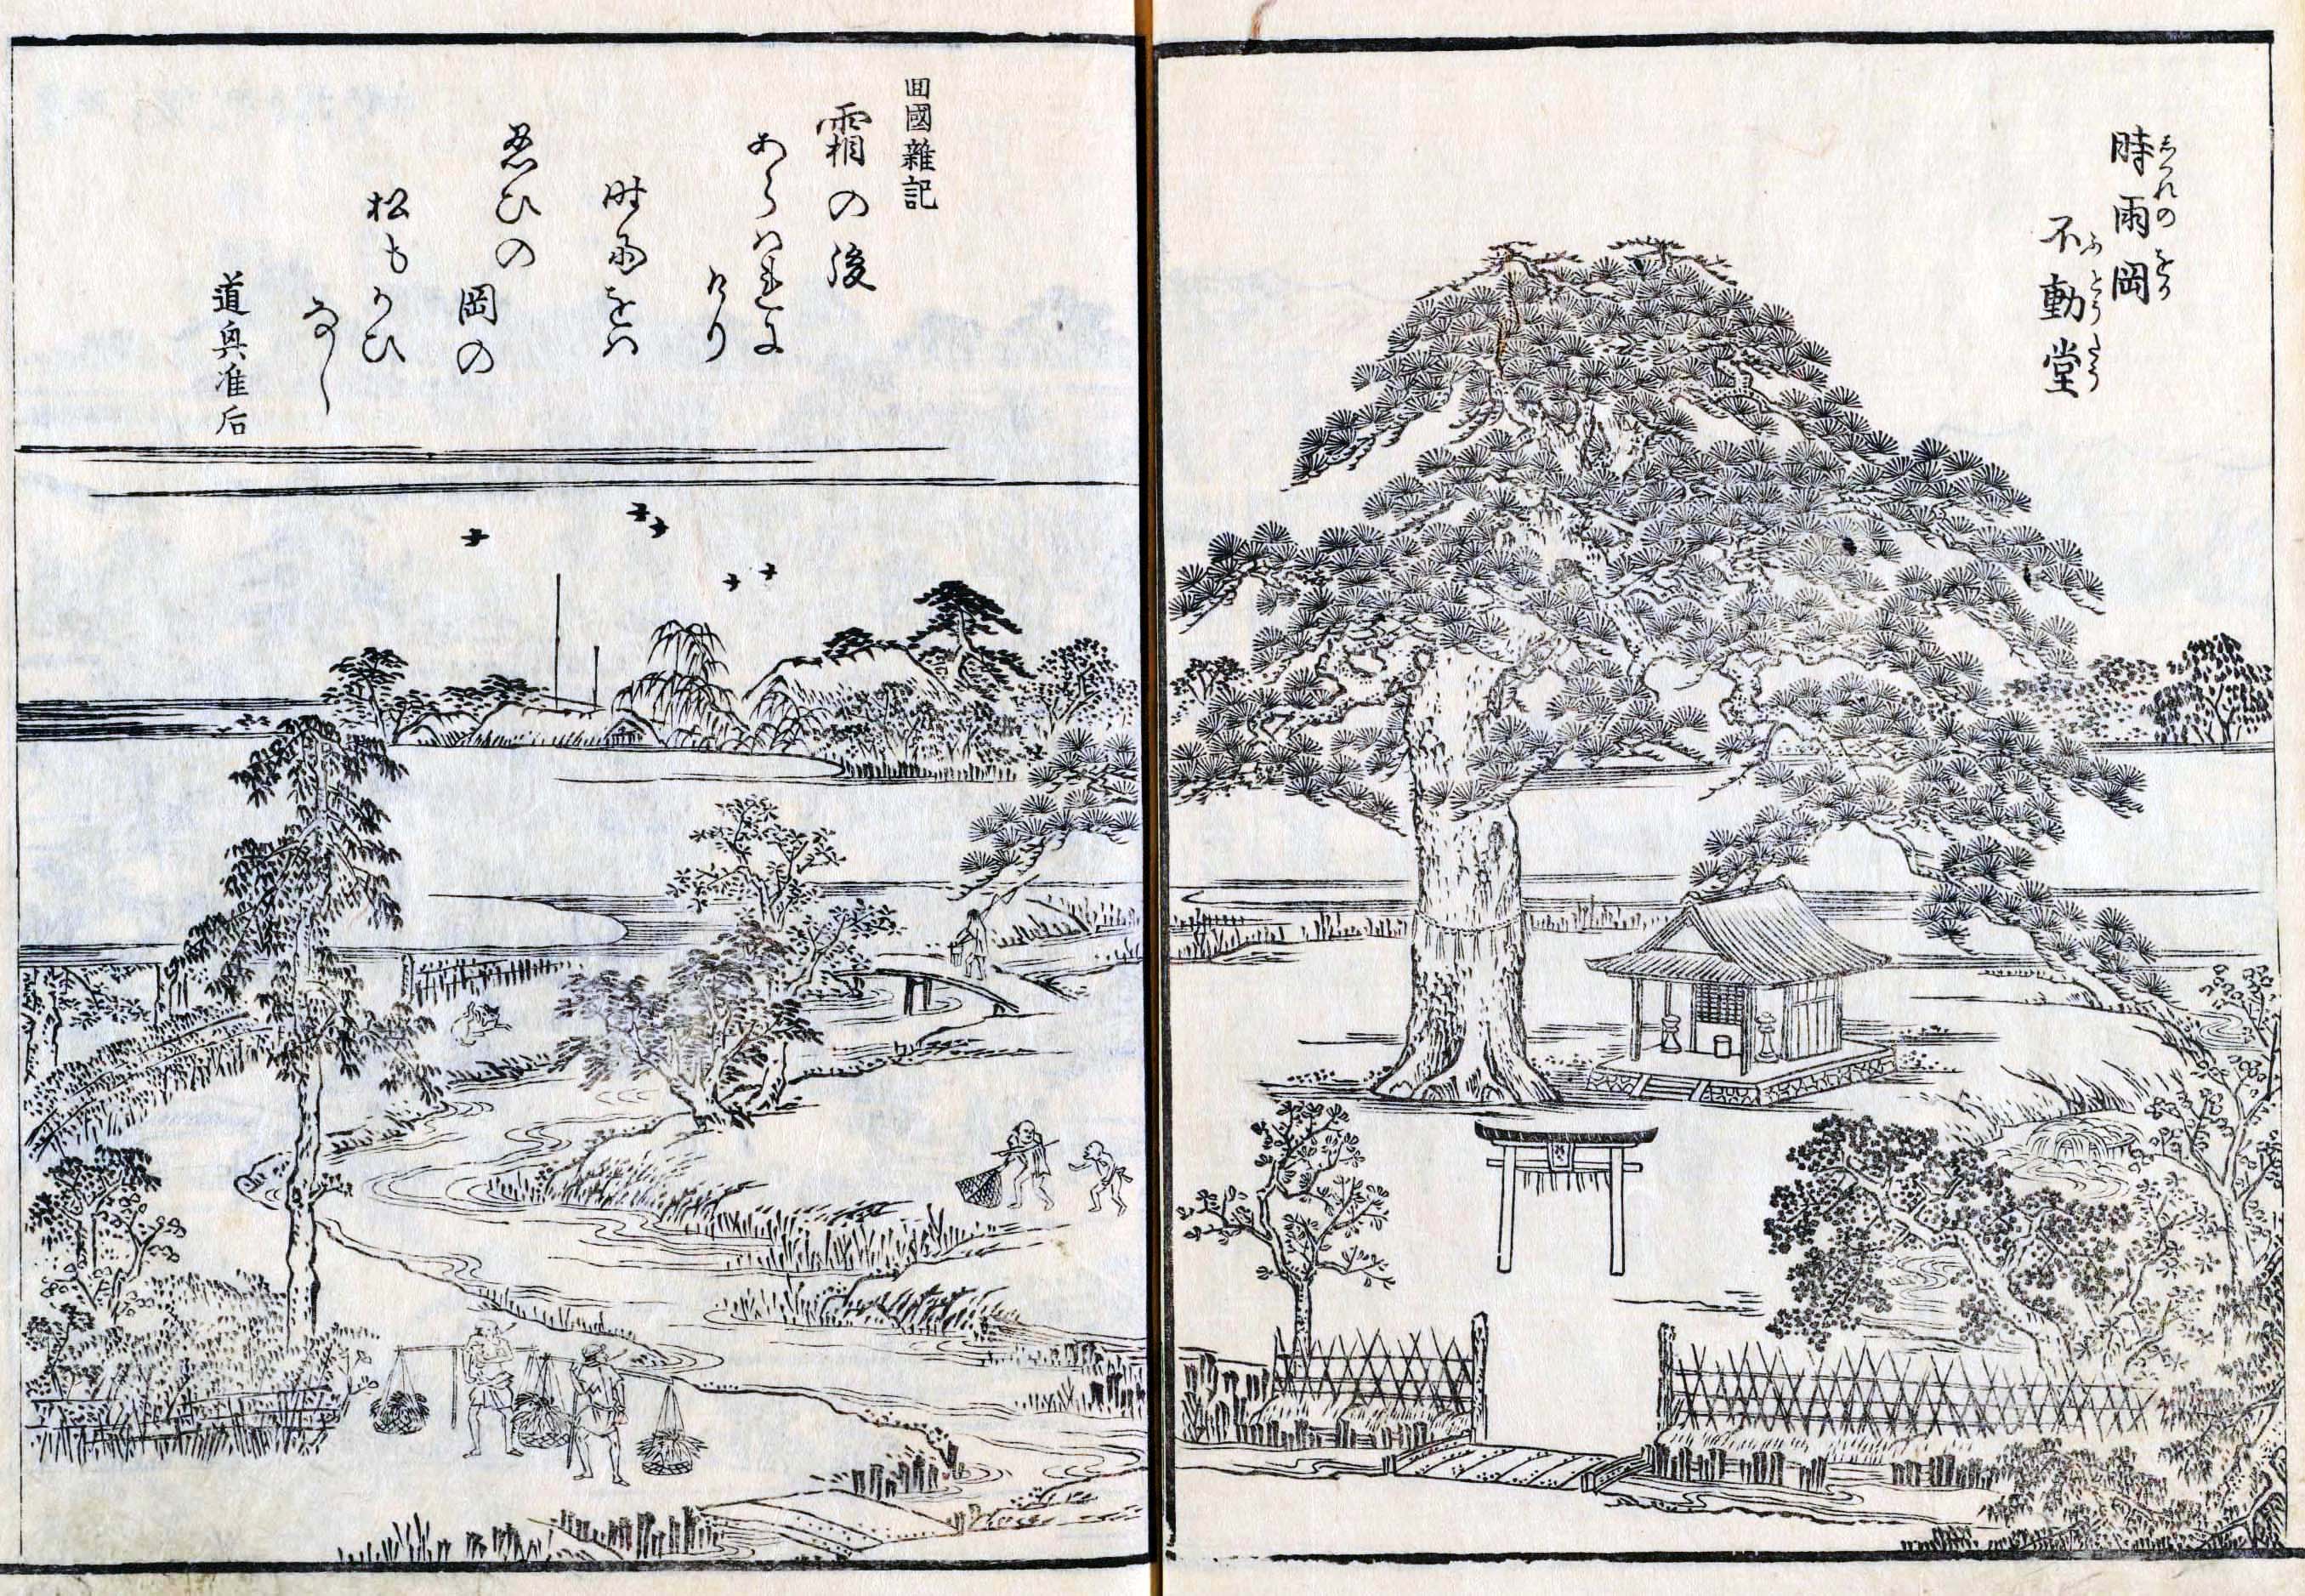 時雨岡
志くれのをか
不動堂
ふどうだう
回國雜記
霜の後
あらはれに
けり
時雨をは
忍ひの
岡の
松もかひ
なし
道興准后